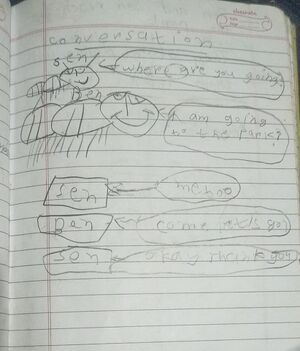 convensation
sen
where are you going.
Ben
I am going
to the park?
sen
me hoo
Ban
come let's go
sen
okay thenk you